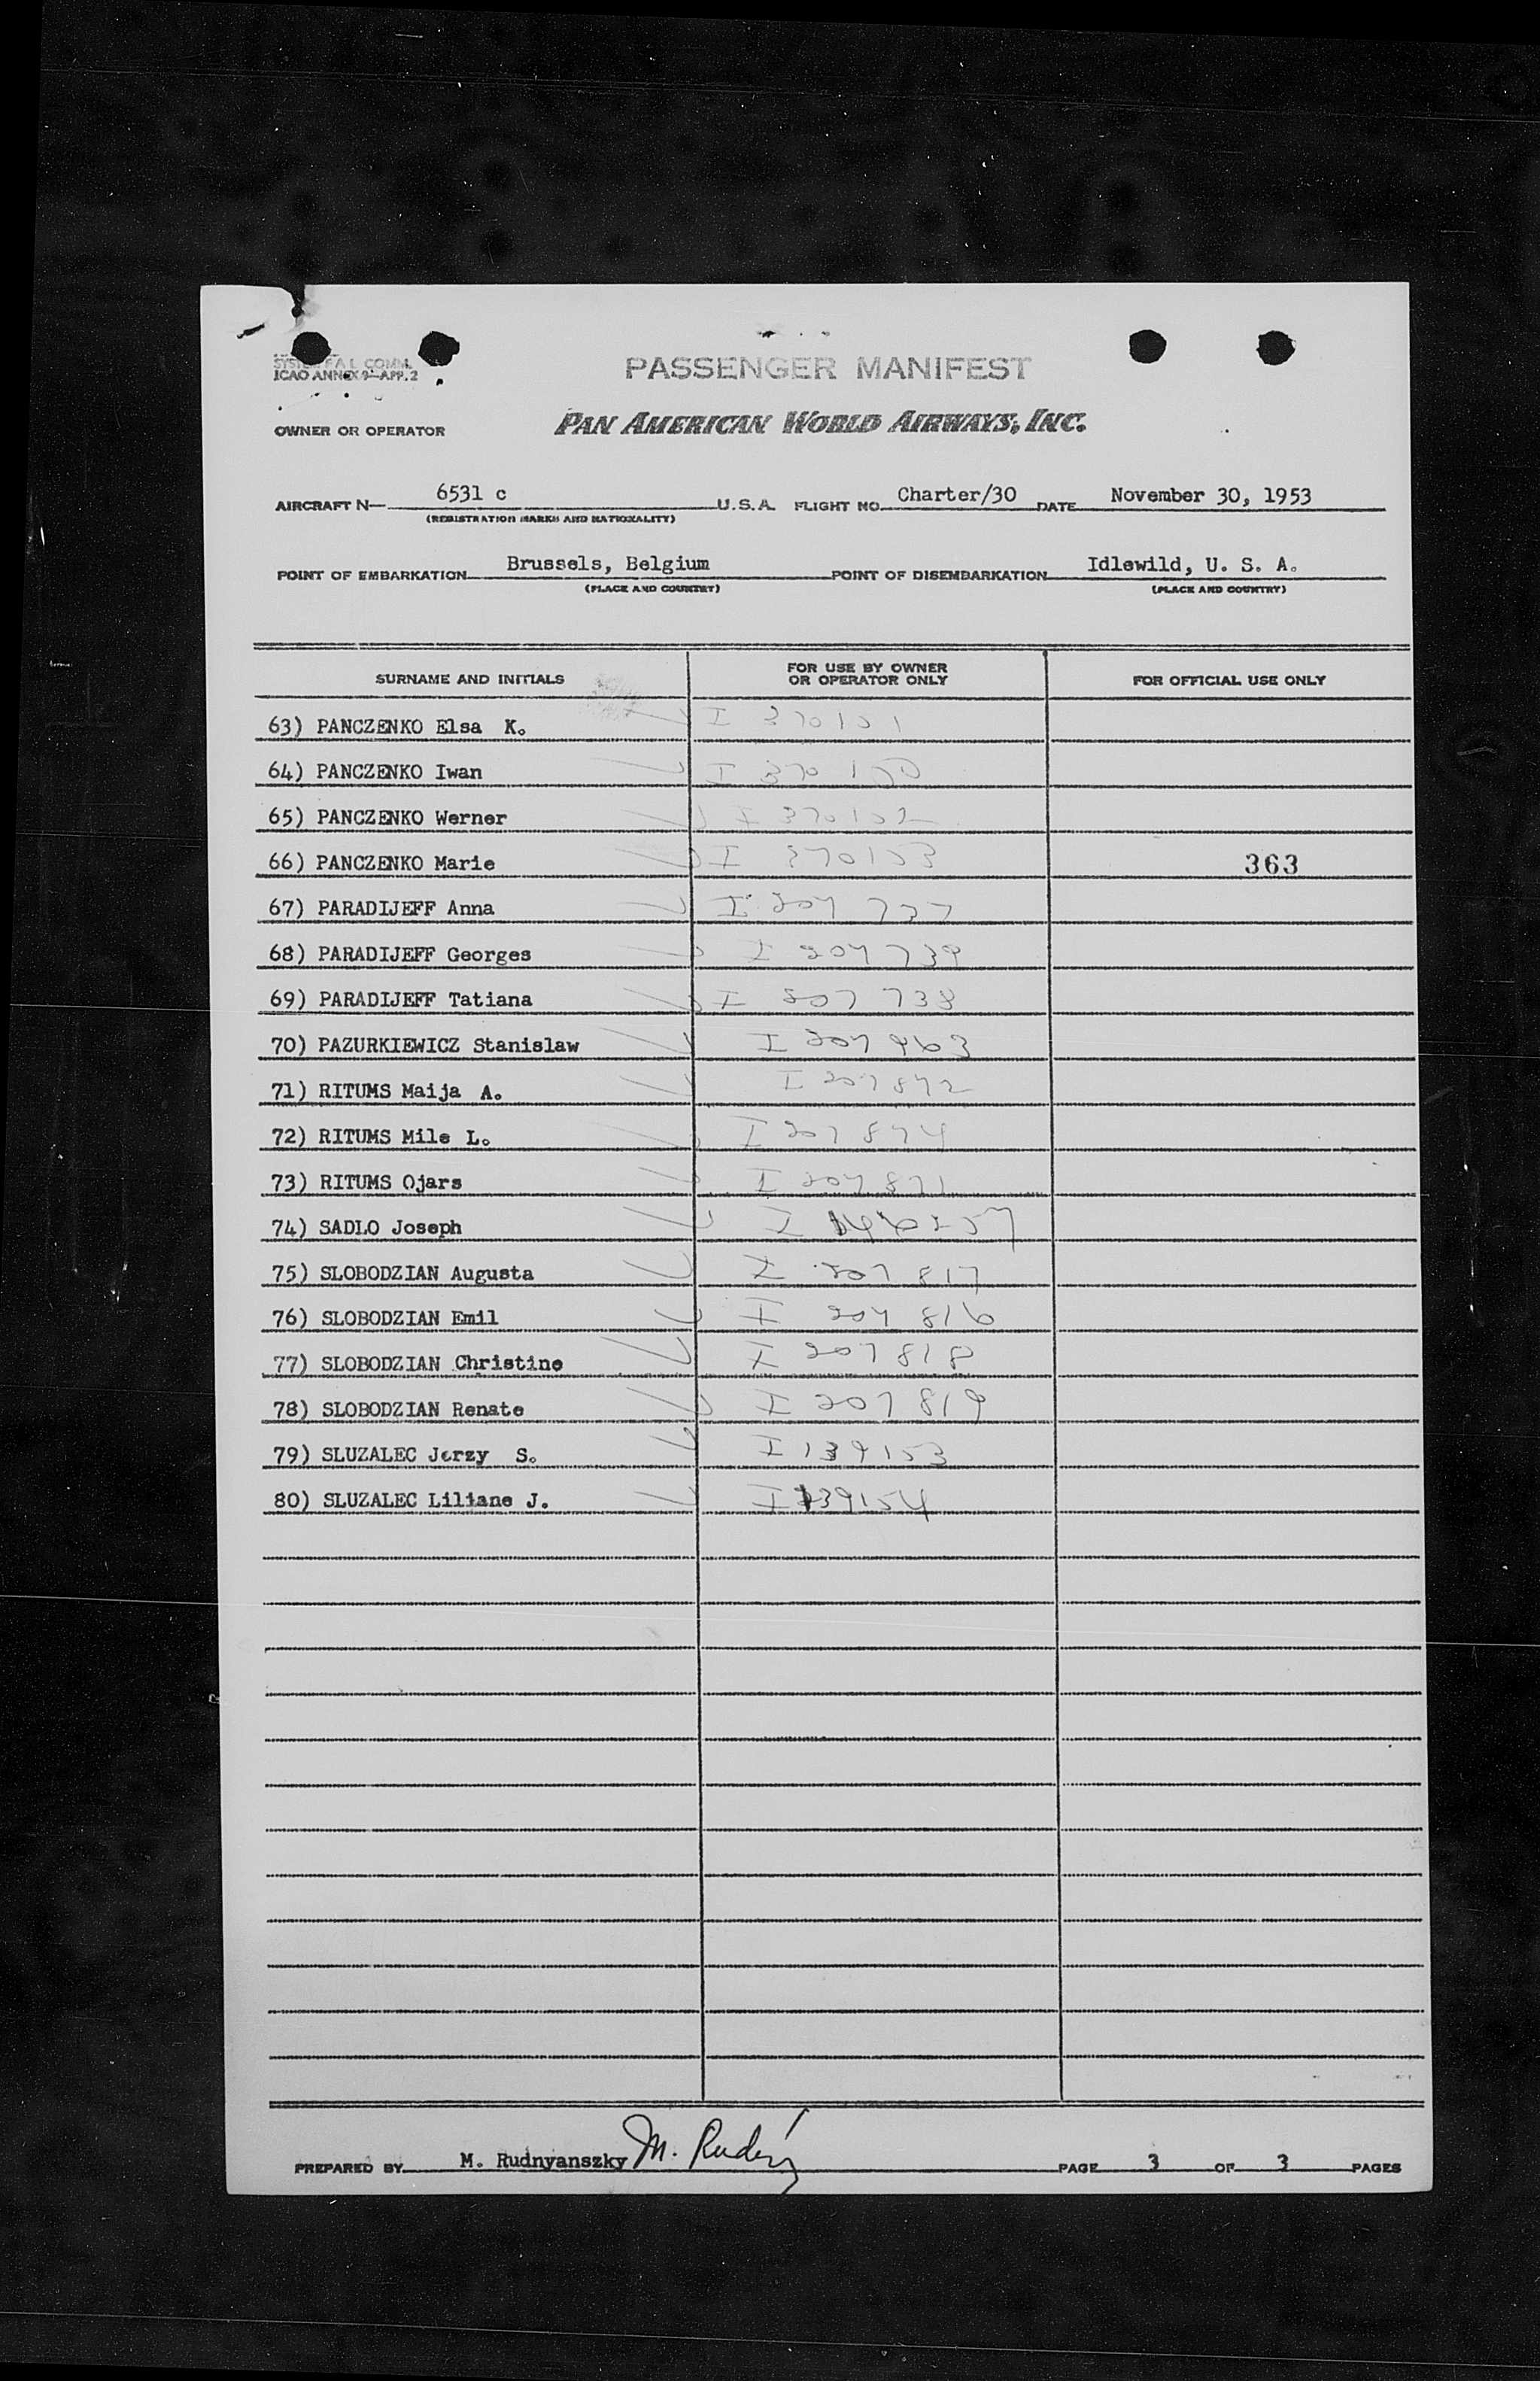 SYSTEM F.A.L. COMM.
ICAO ANNEX 9—APP. 2
PASSENGER MANIFEST
OWNER OR OPERATOR PAN AMERICAN WORLD AIRWAYS, INC.
AIRCRAFT N— 6531 c U.S.A. FLIGHT NO. Charter/30 DATE November 30, 1953
(REGISTRATION MARKS AND NATIONALITY)
POINT OF EMBARKATION Brussels, Belgium POINT OF DISEMBARKATION Idlewild, U. S. A.
(PLACE AND COUNTRY) (PLACE AND COUNTRY)
SURNAME AND INITIALS FOR USE BY OWNER OR OPERATOR ONLY FOR OFFICIAL USE ONLY
63) PANCZENKO Elsa K. I 370151
64) PANCZENKO Iwan I 370150
65) PANCZENKO Werner I 370152
66) PANCZENKO Marie I 370153 363
67) PARADIJEFF Anna I 207 737
68) PARADIJEFF Georges I 207 739
69) PARADIJEFF Tatiana I 207 738
70) PAZURKIEWICZ Stanislaw I 207 963
71) RITUMS Maija A. I 207 872
72) RITUMS Mile L. I 207 874
73) RITUMS Ojars I 207 871
74) SADLO Joseph I
75) SLOBODZIAN Augusta I 207 817
76) SLOBODZIAN Emil I 207 816
77) SLOBODZIAN Christine I 207 818
78) SLOBODZIAN Renate I 207 819
79) SLUZALEC Jerzy S. I 139153
80) SLUZALEC Liliane J. I 139154
PREPARED BY M. Rudnyanszky M. Rudny PAGE 3 OF 3 PAGES